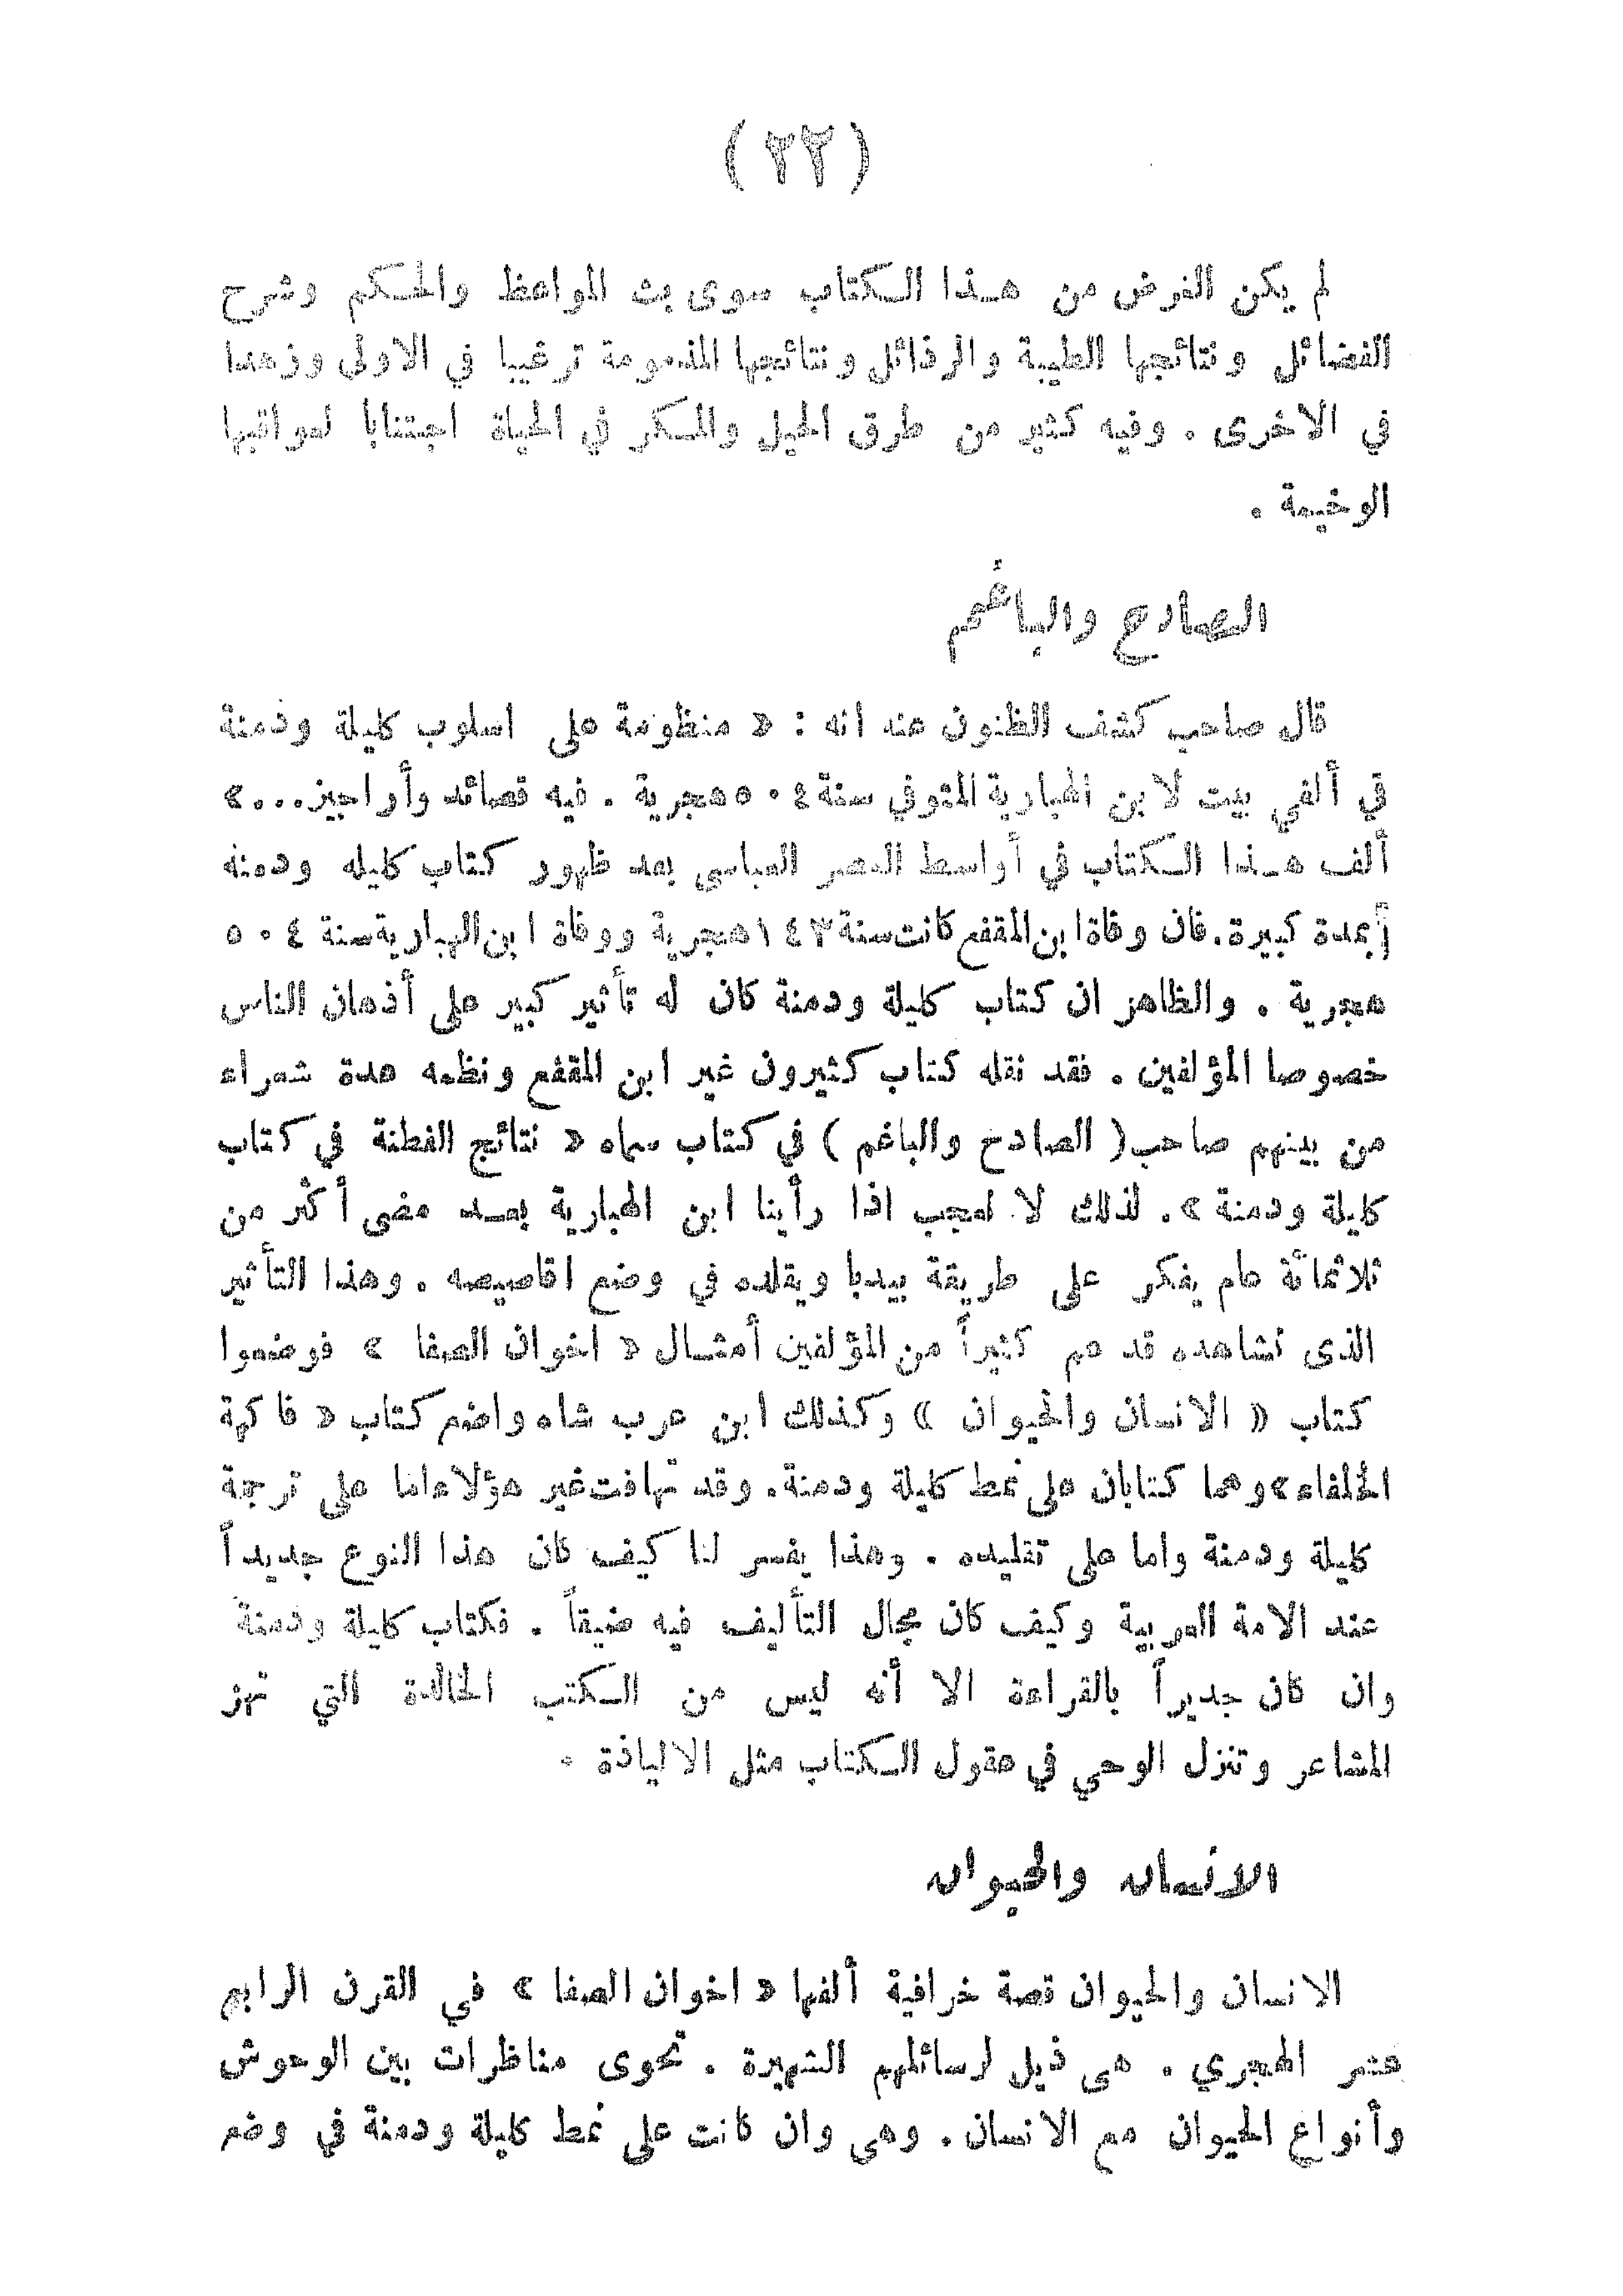 ( ٢٢ )
لم يكن الغرض من هذا الكتاب سوى بث المواعظ والحكم وشرح
الفضائل ونتائجها الطيبة والرذائل ونتائجها المذمومة ترغيبا في الاولى وزهدا
في الاخرى . وفيه كثير من طرق الحيل والمكر في الحياة اجتنابا لعواقبها
الوخيمة .
الصادح والباغم
قال صاحب كشف الظنون عنه انه : « منظومة على اسلوب كليلة ودمنة
في ألفي بيت لابن الهبارية المتوفي سنة ٥٠٤ هجرية . فيه قصائد وأراجيز... »
ألف هذا الكتاب في أواسط العصر العباسى بعد ظهور كتاب كليله ودمنه
بمدة كبيرة . فان وفاة ابن المقفع كانت سنة ١٤٣ هجرية ووفاة ابن الهبارية سنة ٥٠٤
هجرية . والظاهر ان كتاب كليلة ودمنة كان له تأثير كبير على أذهان الناس
خصوصا المؤلفين . فقد نقله كتاب كثيرون غير ابن المقفع ونظمه عدة شعراء
من بينهم صاحب ( الصادح والباغم ) في كتاب سماه « نتائج الفطنة في كتاب
كليلة ودمنة » . لذلك لا لعجب اذا رأينا ابن الهبارية بعد مضى أكثر من
ثلاثمائة عام يفكر على طريقة بيدبا ويقلده في وضع اقاصيصه . وهذا التأثير
الذى نشاهده قد عم كثيراً من المؤلفين أمثال « اخوان الصفا » فوضعوا
كتاب « الانسان والحيوان » وكذلك ابن عرب شاه واضع كتاب « فاكهة
الخلفاء » وهما كتابان على نمط كليلة ودمنة . وقد تهافت غير هؤلاء اما على ترجمة
كليلة ودمنة واما على تقليده . وهذا يفسر لنا كيف كان هذا النوع جديداً
عند الامة العربية وكيف كان مجال التأليف فيه ضيقاً . فكتاب كليلة ودمنة
وان كان جديراً بالقراءة الا أنه ليس من الكتب الخالدة التي تهز
المشاعر وتنزل الوحي في عقول الكتاب مثل الالياذة .
الانسان والحيوان
الانسان والحيوان قصة خرافية ألفها « اخوان الصفا » في القرن الرابع
عشر الهجري . هى ذيل لرسائلهم الشهيرة . تحوى مناظرات بين الوحوش
وأنواع الحيوان مع الانسان . وهى وان كانت على نمط كليلة ودمنة في وضع